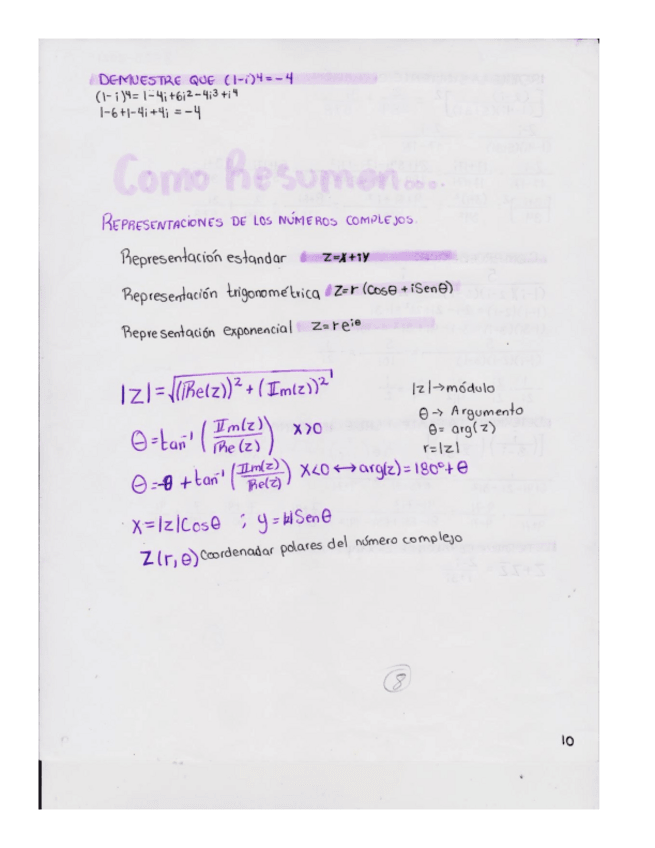 DEMUESTRE QUE (1-i)⁴=-4
(1-i)⁴= 1-4i+6i²-4i³+i⁴
1-6+1-4i+4i = -4
Como Resumen....
REPRESENTACIONES DE LOS NÚMEROS COMPLEJOS.
Representación estandar z=x+iy
Representación trigonométrica z=r (Cosθ + iSenθ)
Representación exponencial z=re^iθ
|z|=√(Re(z))²+(Im(z))²
|z|→módulo
θ→ Argumento
θ= arg(z)
r=|z|
θ=tan⁻¹ (Im(z)/Re(z)) x>0
θ=-θ + tan⁻¹ (Im(z)/Re(z)) x<0 ↔ arg(z)=180°+θ
x=|z|Cosθ ; y=|z|Senθ
Z(r,θ) Coordenadar polares del número complejo
8
10